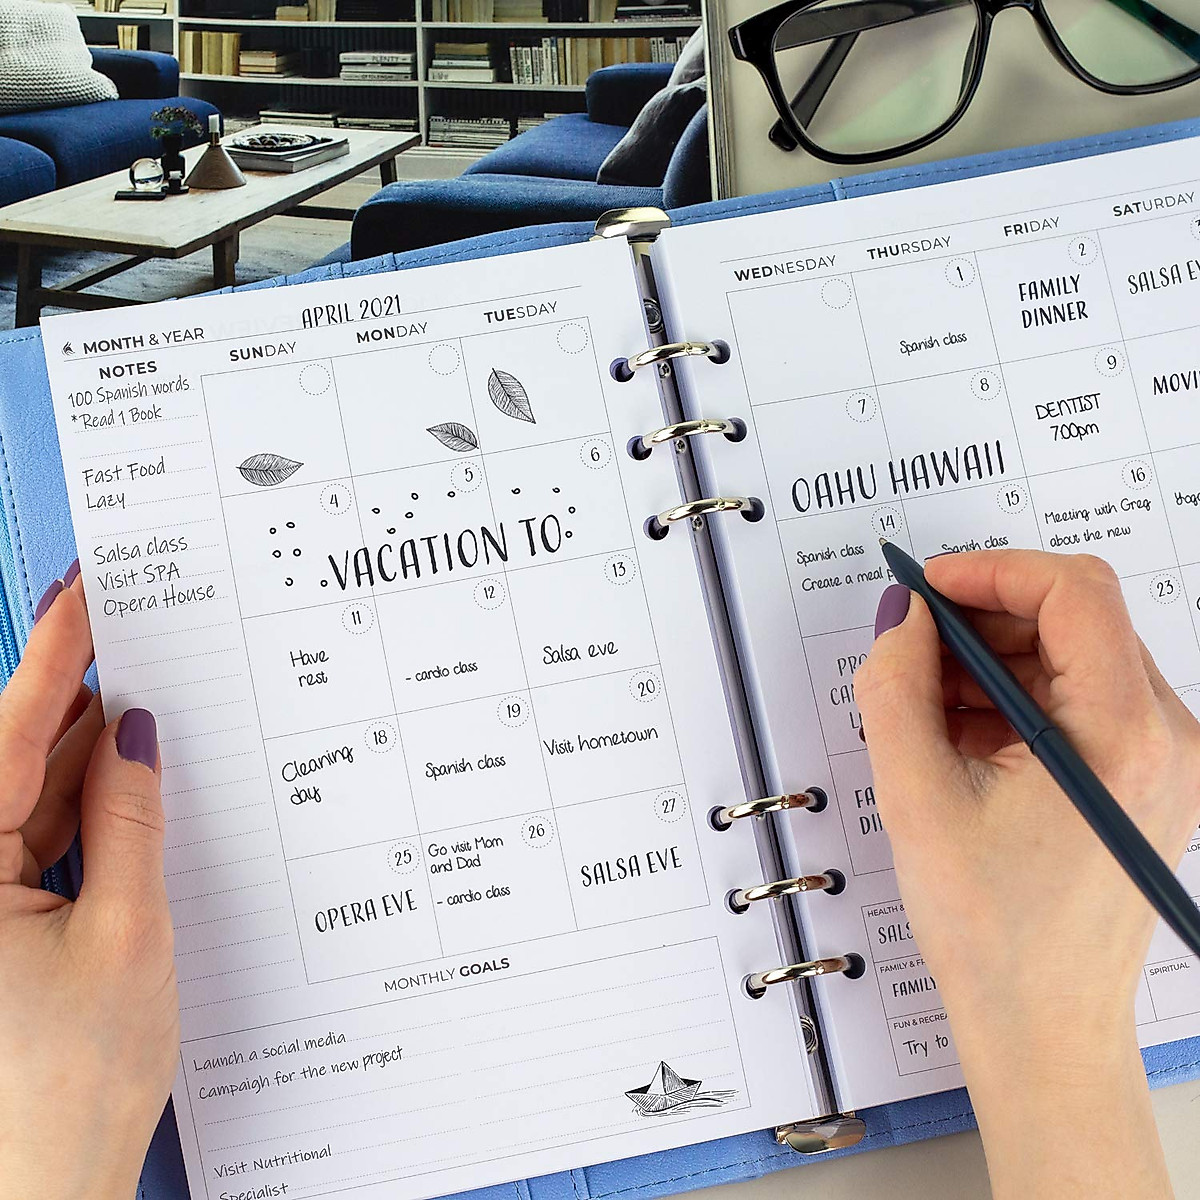 PLENTY
APRIL 2021
MONTH & YEAR
NOTES
100 Spanish words
*Read 1 Book
Fast Food
Lazy
Salsa class
Visit SPA
Opera House
SUNDAY
MONDAY
TUESDAY
4
5
6
VACATION TO
11
Have
rest
12
- cardio class
13
Salsa eve
18
Cleaning
day
19
Spanish class
20
Visit hometown
25
OPERA EVE
26
Go visit Mom
and Dad
- cardio class
27
SALSA EVE
MONTHLY GOALS
Launch a social media
Campaigh for the new project
Visit Nutritional
Specialist
WEDNESDAY
THURSDAY
FRIDAY
SATURDAY
1
Spanish class
2
FAMILY
DINNER
SALSA EV
7
8
9
DENTIST
7:00pm
MOVI
OAHU HAWAII
14
Spanish class
Create a meal p
15
Spanish class
16
Meeting with Greg
about the new
PRO
CAM
L
23
FA
DI
HEALTH &
SALS
FAMILY & FR
FAMILY
FUN & RECREA
Try to
SPIRITUAL